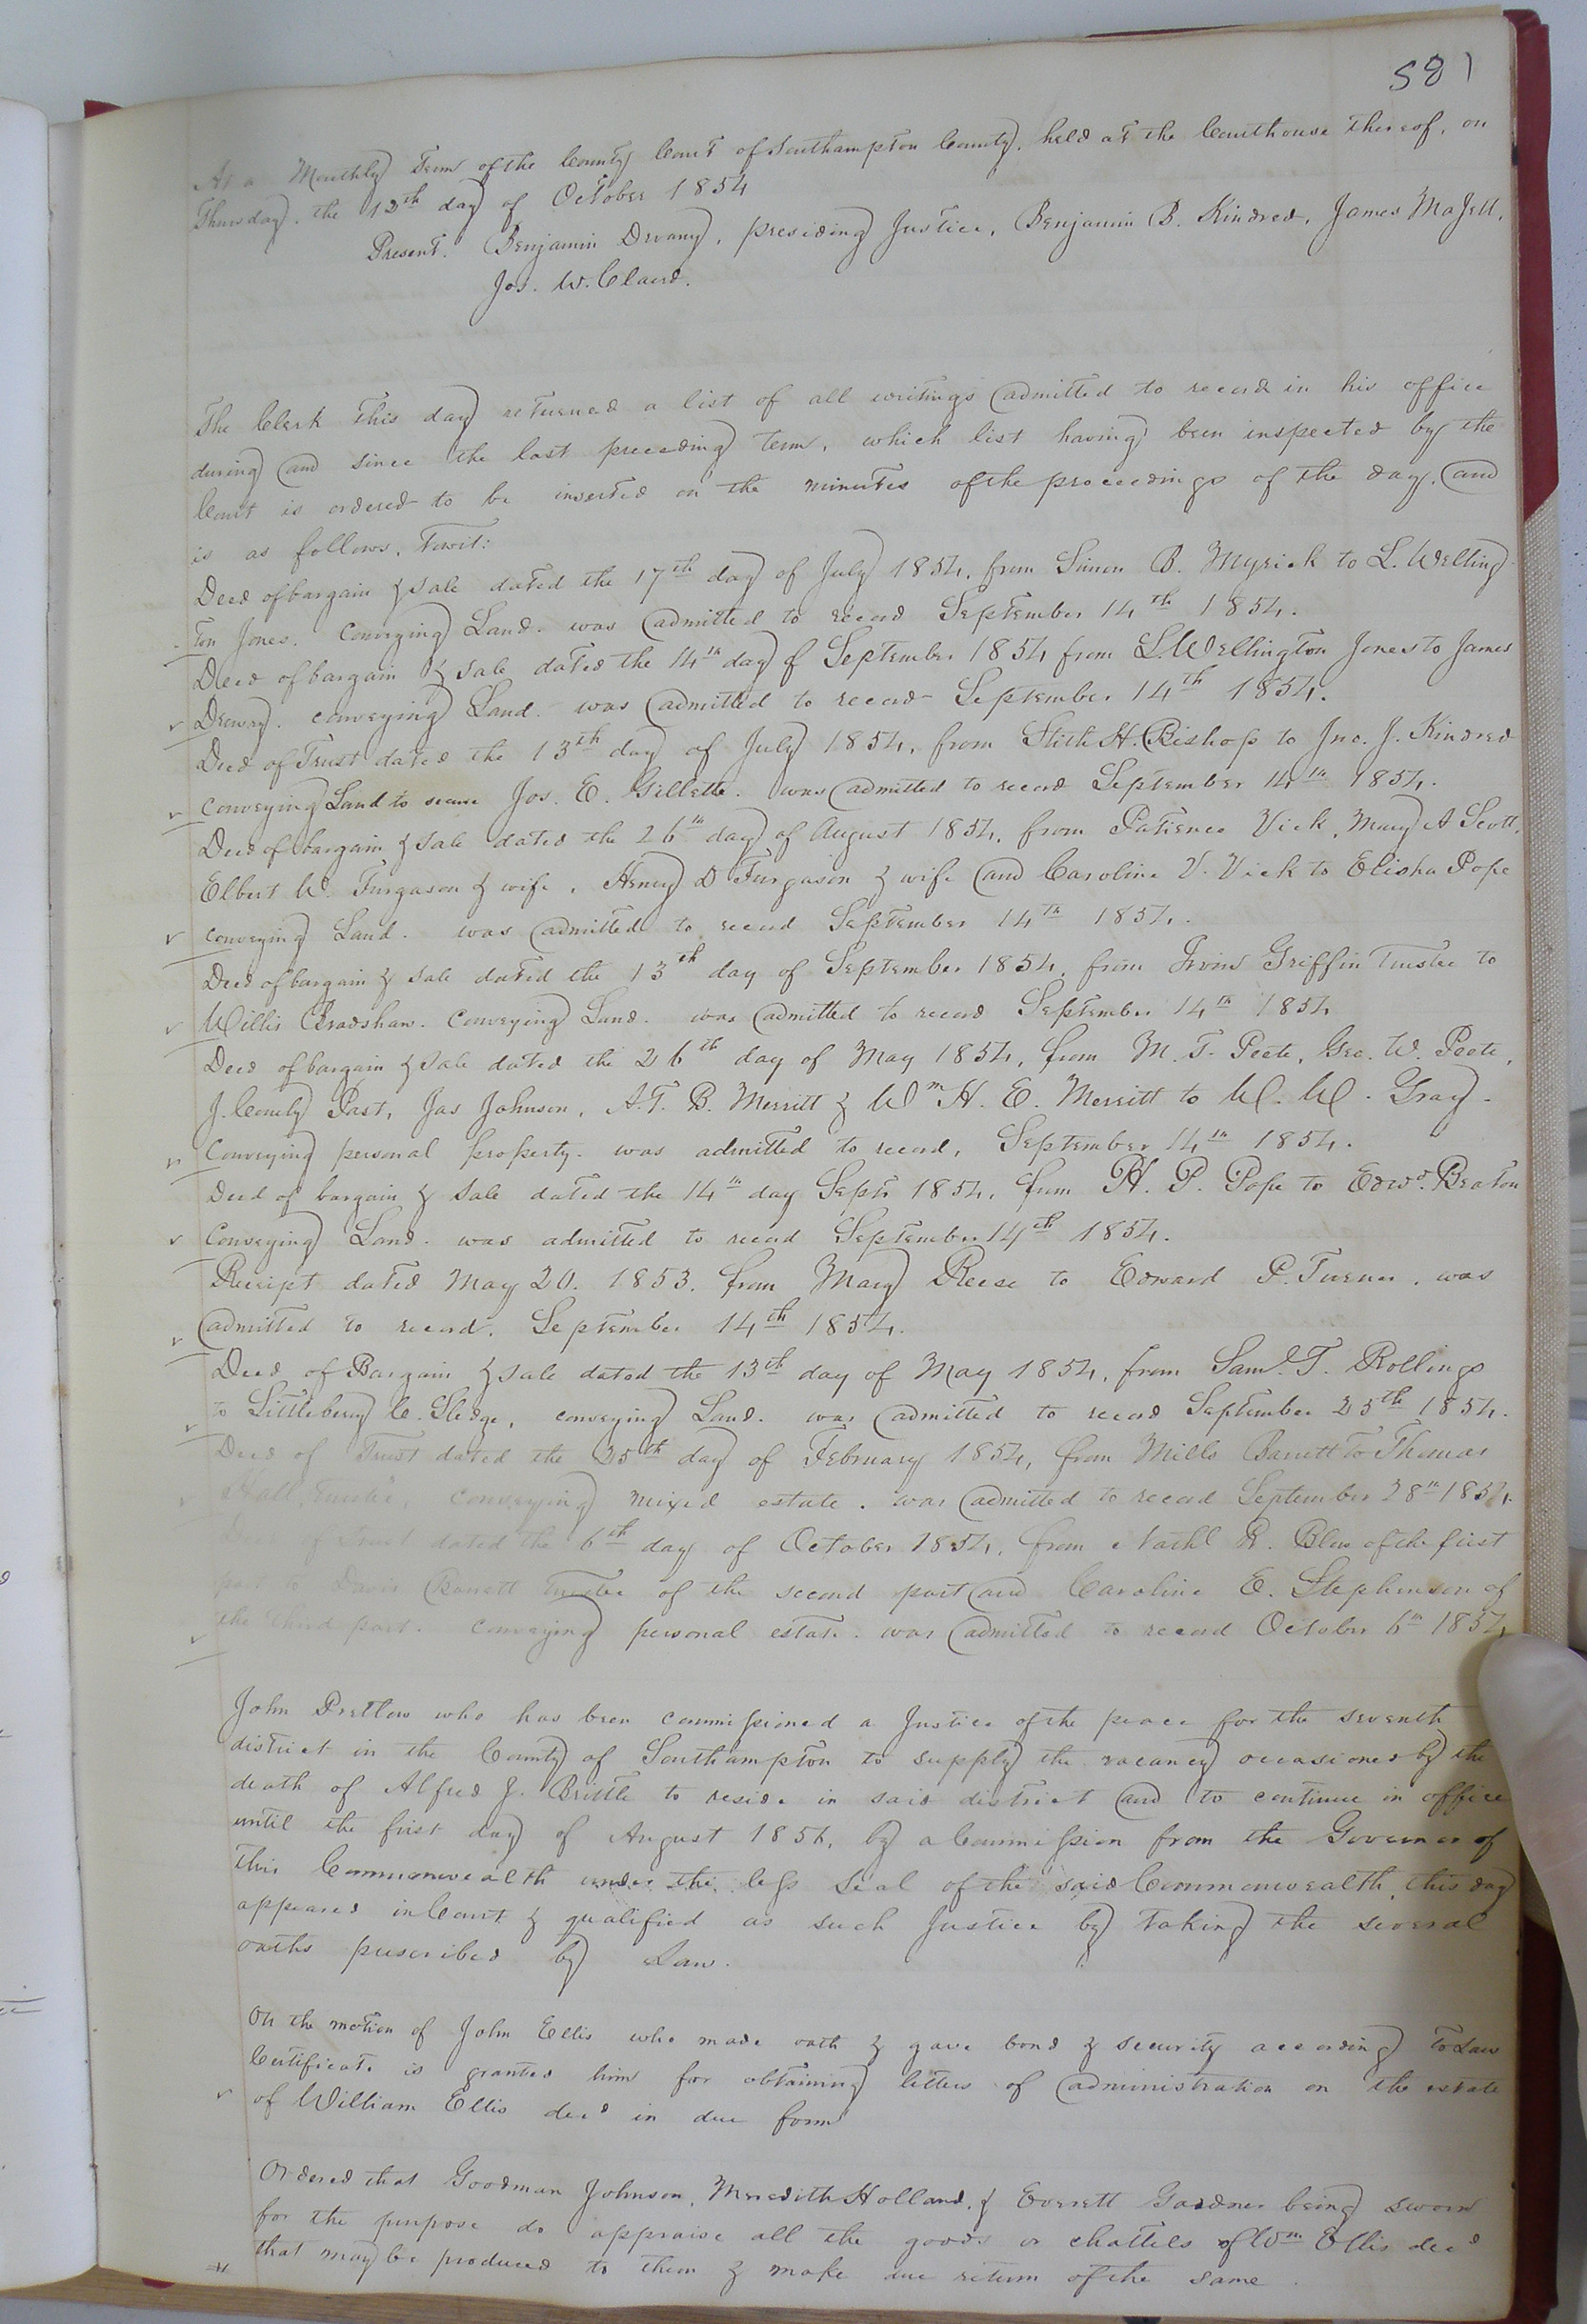 581
At a Monthly Term of the County Court of Southampton County, held at the Courthouse thereof, on
Thursday, the 12th day of October 1854
Present. Benjamin Devany, presiding Justice, Benjamin B. Kindred, James Majett,
Jos. W. Claud.
The Clerk this day returned a list of all writings admitted to record in his office
during and since the last preceeding term, which list having been inspected by the
Court is ordered to be inserted on the minutes of the proceedings of the day, and
is as follows, Towit:
Deed of bargain & sale dated the 17th day of July 1854, from Simon B. Myrick to L. Welling-
ton Jones. conveying Land. was admitted to record September 14th 1854.
Deed of bargain & sale dated the 14th day of September 1854 from L. Wellington Jones to James
Drewry. conveying Land. was admitted to record September 14th 1854.
Deed of Trust dated the 13th day of July 1854, from Stith H. Bishop to Jno. J. Kindred
conveying Land to secure Jos. E. Gillette. was admitted to record September 14th 1854.
Deed of bargain & sale dated the 26th day of August 1854, from Patience Vick, Mary A Scott,
Elbert W. Furgason & wife, Henry D Furgason & wife and Caroline V. Vick to Elisha Pope
conveying Land. was admitted to record September 14th 1854.
Deed of bargain & sale dated the 13th day of September 1854, from Irvin Griffin Trustee to
Willis Bradshaw. Conveying Land. was admitted to record September 14th 1854
Deed of bargain & sale dated the 26th day of May 1854, from M. T. Peete, Geo. W. Peete,
J. Comely Past, Jas Johnson, A. T. B. Merritt & Wm H. E. Merritt to W. W. Gray.
Conveying personal property. was admitted to record, September 14th 1854.
Deed of bargain & sale dated the 14th day Septr 1854, from H. P. Pope to Edwd. Beaton
Conveying Land. was admitted to record September 14th 1854.
Receipt dated May 20. 1853. from Mary Reese to Edward P. Turner. was
admitted to record. September 14th 1854.
Deed of Bargain & sale dated the 13th day of May 1854, from Saml. T. Rollings
to Littlebery C. Sledge, conveying Land. was admitted to record September 25th 1854.
Deed of Trust dated the 25th day of February 1854, from Mills Barrett to Thomas
Hall, Trustee, conveying mixed estate. was admitted to record September 28th 1854.
of Trust dated the 6th day of October 1854, from Nathl R. Blow of the first
part to Davis Barrett Trustee of the second part and Caroline E. Stephenson of
the third part. conveying personal estate. was admitted to record October 6th 1854
John Pretlow who has been commissioned a Justice of the peace for the seventh
district in the County of Southampton to supply the vacancy occasioned by the
death of Alfred J. Brittle to reside in said district and to continue in office
until the first day of August 1856, by a Commission from the Governor of
this Commonwealth under the less seal of the said Commonwealth, this day
appeared in Court & qualified as such Justice by taking the several
oaths prescribed by Law.
On the motion of John Ellis who made oath & gave bond & security according to Law
Certificate is granted him for obtaining letters of administration on the estate
of William Ellis decd in due form
Ordered that Goodman Johnson, Meredith Holland, & Everett Gardner being sworn
for the purpose do appraise all the goods or chattels of Wm Ellis decd
that may be produced to them & make due return of the same.